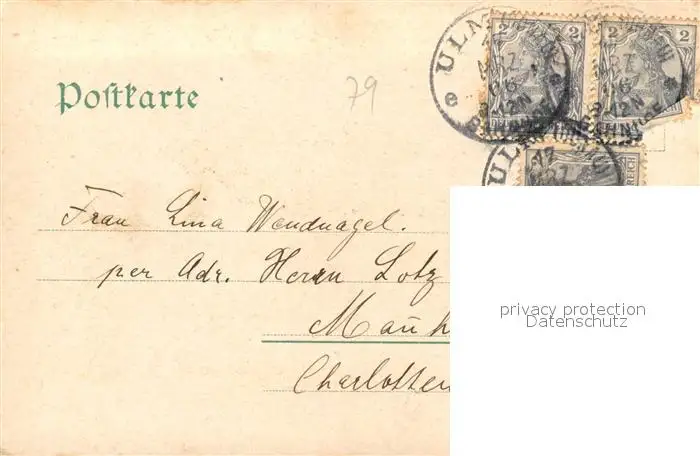 Postkarte
79
2 2
ULM
ULM
17
REICH
Frau Lina Wendnagel.
per Adr. Herrn Lotz
Mannh
Charlotten
privacy protection
Datenschutz